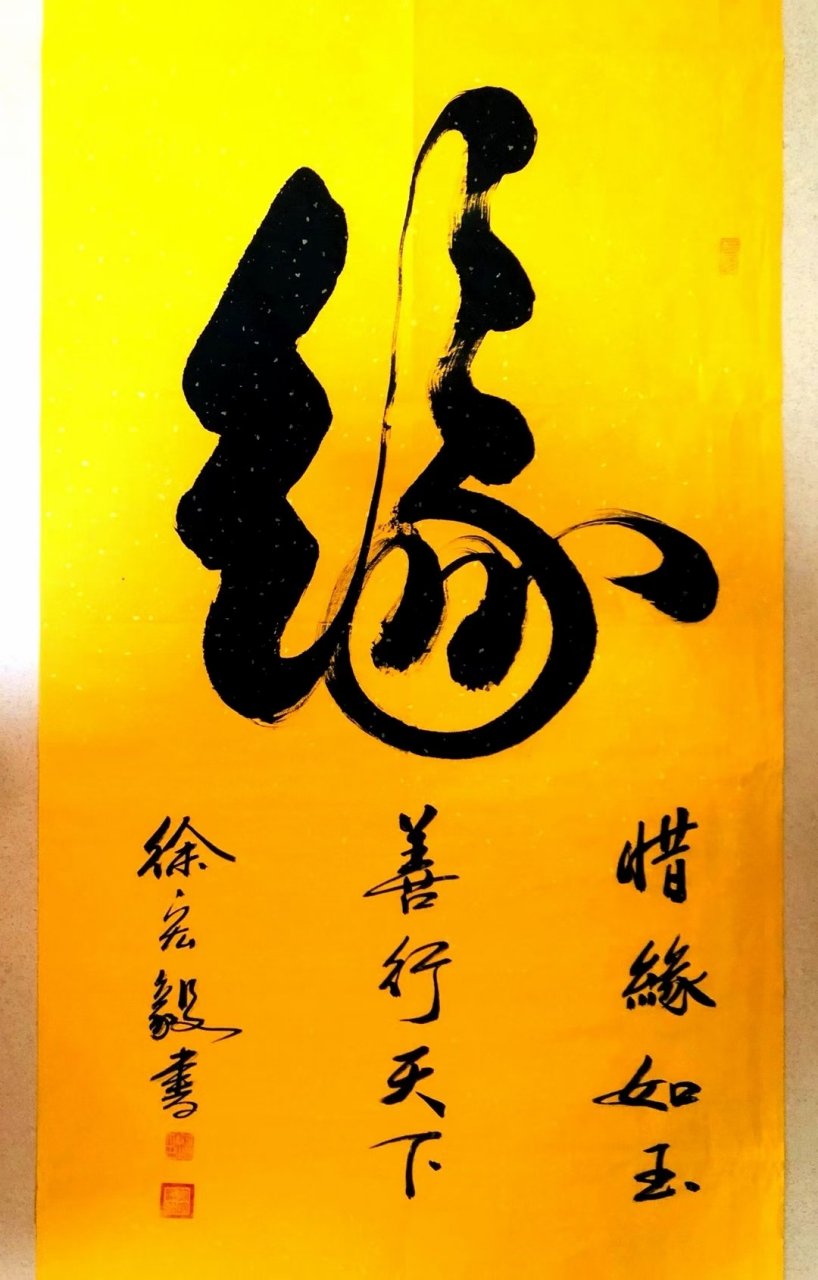 緣
惜緣如玉
善行天下
徐宏毅書